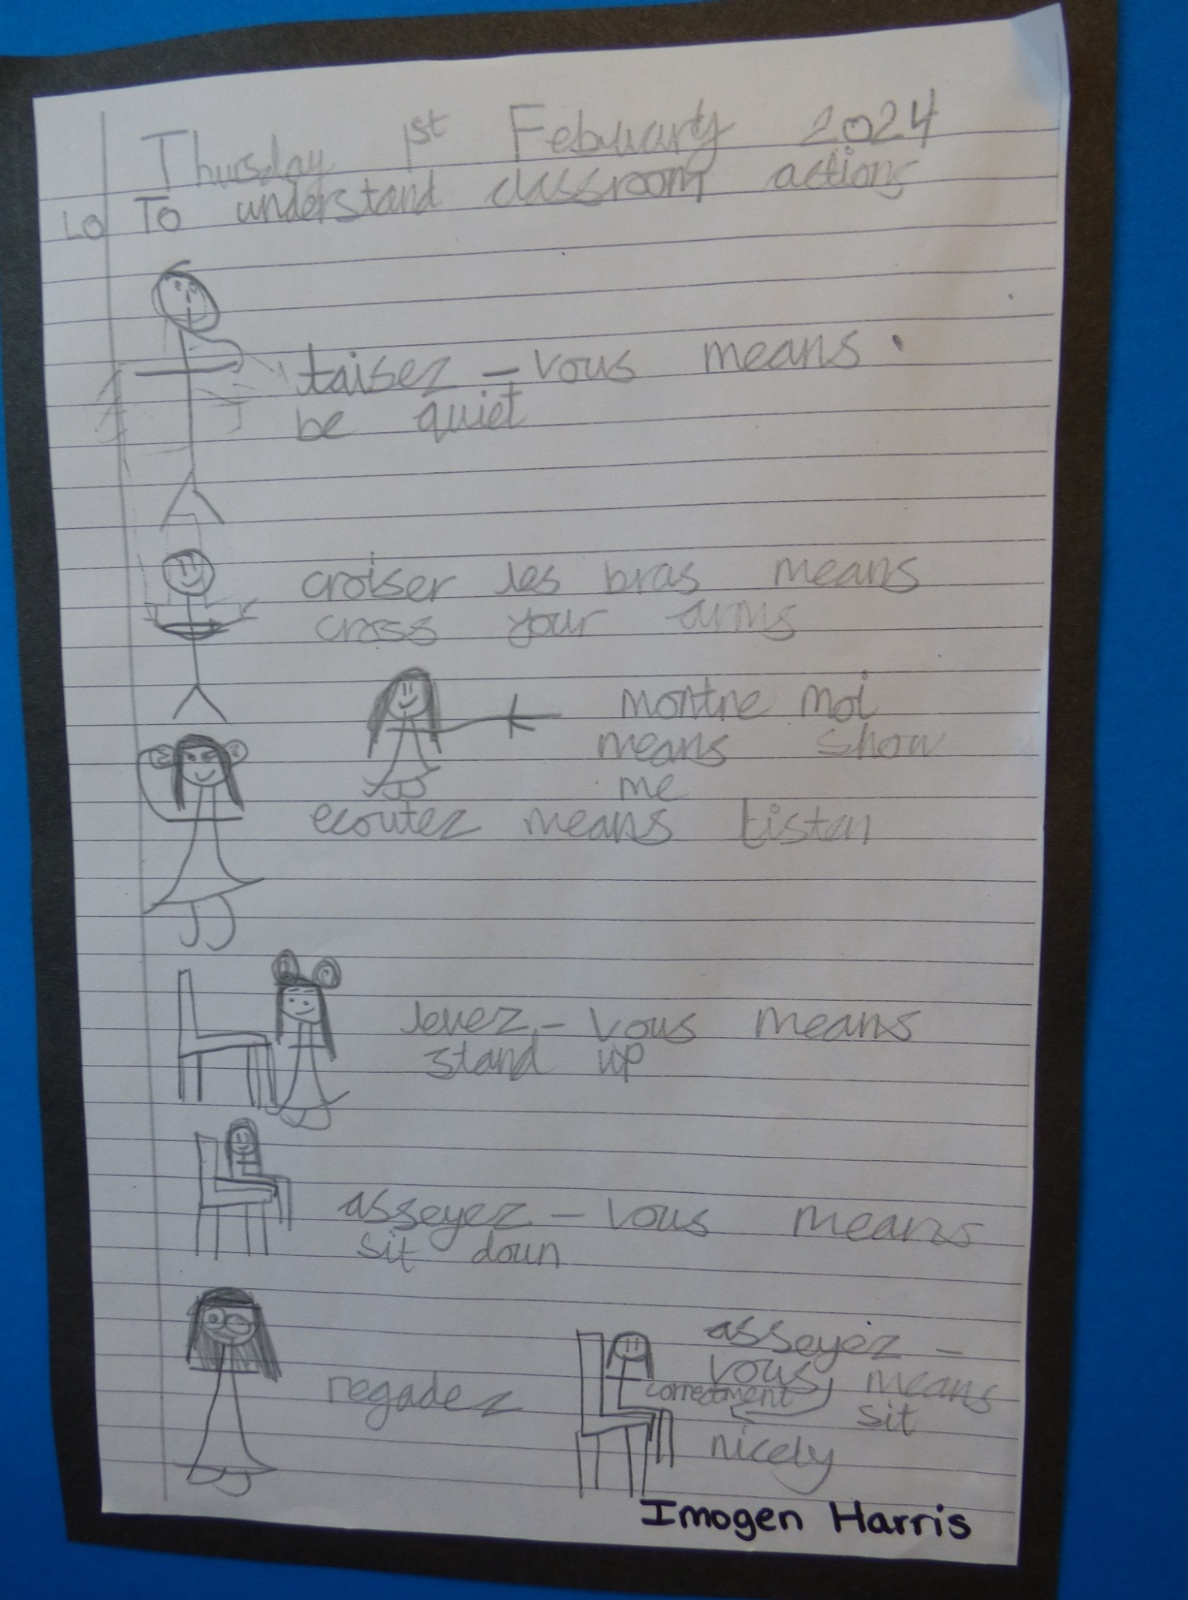 Thursday 1st Febuuarty 2024
LO To understand classroom actions
taisez - vous means
be quiet
croiser les bras means
cross your arms
montre moi
means show
me
ecoutez means listan
levez - vous means
stand up
asseyez - vous means
sit doun
regadez
asseyez -
vous means
correctment sit
nicely
Imogen Harris